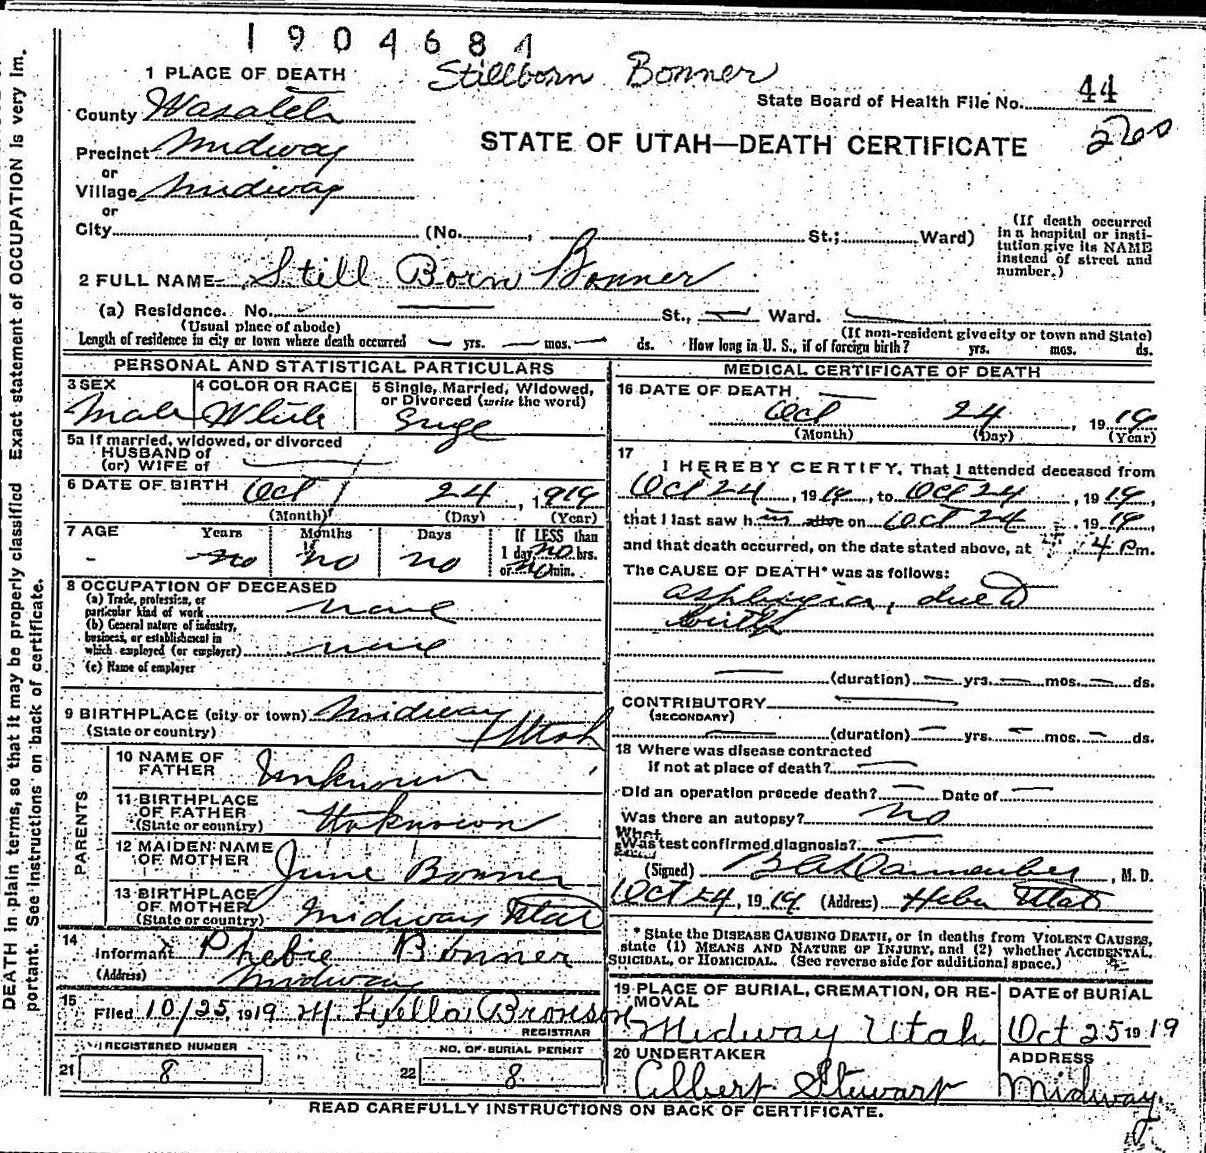 1904684
Stillborn Bonner
1 PLACE OF DEATH
State Board of Health File No. 44
260
County Wasatch
STATE OF UTAH—DEATH CERTIFICATE
Precinct Midway
or
Village Midway
or
City (No. , St.; Ward)
(If death occurred in a hospital or insti-
tution give its NAME
instead of street and
number.)
2 FULL NAME Still Born Bonner
(a) Residence. No. St., Ward.
(Usual place of abode) (If non-resident give city or town and State)
Length of residence in city or town where death occurred yrs. mos. ds. How long in U. S., if of foreign birth? yrs. mos. ds.
PERSONAL AND STATISTICAL PARTICULARS
3 SEX 4 COLOR OR RACE 5 Single, Married, Widowed,
or Divorced (write the word)
Male White Singe
5a If married, widowed, or divorced
HUSBAND of
(or) WIFE of
6 DATE OF BIRTH Oct 24, 1919
(Month) (Day) (Year)
7 AGE Years Months Days If LESS than
1 day no hrs.
or no min.
- no no no
8 OCCUPATION OF DECEASED
(a) Trade, profession, or
particular kind of work none
(b) General nature of industry,
business, or establishment in
which employed (or employer) none
(c) Name of employer
9 BIRTHPLACE (city or town) Midway
(State or country) Utah
PARENTS
10 NAME OF
FATHER Unknown
11 BIRTHPLACE
OF FATHER
(State or country) Unknown
12 MAIDEN NAME
OF MOTHER June Bonner
13 BIRTHPLACE
OF MOTHER
(State or country) Midway Utah
14 Informant Phebie Bonner
(Address) Midway
15 Filed 10/25, 1919 M. Luella Bronson
REGISTRAR
REGISTERED NUMBER NO. OF BURIAL PERMIT
21 8 22 8
MEDICAL CERTIFICATE OF DEATH
16 DATE OF DEATH
Oct 24, 1919
(Month) (Day) (Year)
17
I HEREBY CERTIFY, That I attended deceased from
Oct 24, 1919, to Oct 24, 1919,
that I last saw him alive on Oct 24, 1919
and that death occurred, on the date stated above, at 4 Pm.
The CAUSE OF DEATH* was as follows:
asphyxia, due to
birth
(duration) yrs. mos. ds.
CONTRIBUTORY
(SECONDARY)
(duration) yrs. mos. ds.
18 Where was disease contracted
If not at place of death?
Did an operation precede death? Date of
Was there an autopsy? no
What
Was test confirmed diagnosis?
(Signed) Dannenberg, M. D.
Oct 24, 1919 (Address) Heber Utah
* State the DISEASE CAUSING DEATH, or in deaths from VIOLENT CAUSES,
state (1) MEANS AND NATURE OF INJURY, and (2) whether ACCIDENTAL,
SUICIDAL, or HOMICIDAL. (See reverse side for additional space.)
19 PLACE OF BURIAL, CREMATION, OR RE-
MOVAL
Midway Utah
DATE of BURIAL
Oct 25 1919
20 UNDERTAKER
Albert Stewart
ADDRESS
Midway
READ CAREFULLY INSTRUCTIONS ON BACK OF CERTIFICATE.
DEATH in plain terms, so that it may be properly classified Exact statement of OCCUPATION is very im-
portant. See instructions on back of certificate.